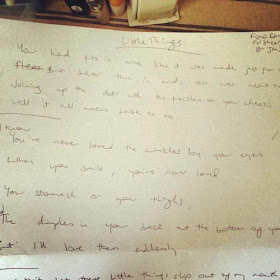 Little Things
You hand fits in mine like it was made just
But bear this in mind, this was meant
Joining up the dots with the freckles on your cheeks
it all makes sense to me
know
You've never loved the crinkles by your eyes
When you smile, you've never loved
You stomach or your thighs,
The dimples in your back at the bottom of yo
But I'll love them endlessly
these little things slip out of my